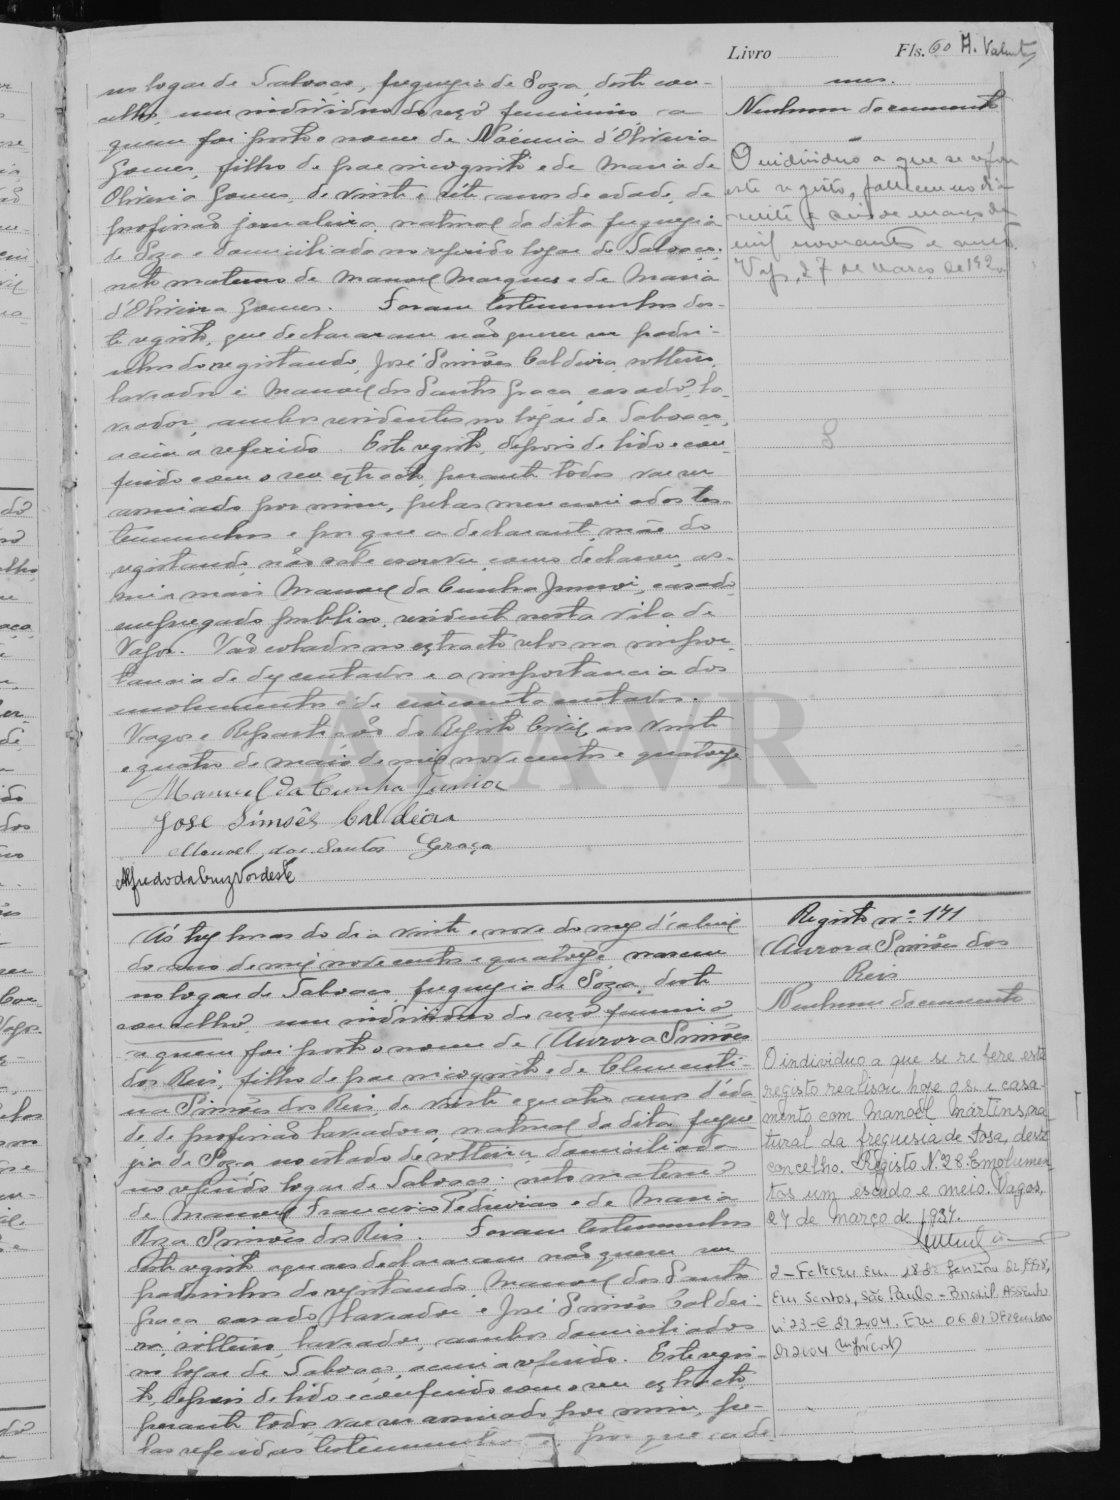 Livro Fls. 60 A. Valente
no logar de Salvaço, freguezia de Soza, deste con-
celho, um individuo do sexo feminino a
quem foi posto o nome de Noémia d'Oliveira
Gomes, filho de pae incognito e de Maria de
Oliveira Gomes, de vinte e séte annos de edade, de
profissão jornaleira, natural da dita freguezia
de Soza e domiciliada no referido logar de Salvaço:
neto materno de Manoel Marques e de Maria
d'Oliveira Gomes. Foram testemunhas des-
te registo, que declararam não querer ser padri-
nhos do registando, José Simões Caldeira, solteiro,
lavrador e Manoel dos Santos Graça, casado, la-
vrador, ambos residentes no logar de Salvaço,
acima referido. Este registo, depois de lido e con-
ferido com o seu extracto, perante todos vae ser
assinado por mim, pelas mencionadas tes-
temunhas e por que a declarante, mãe do
registando, não sabe escrever, como declarou, as-
sina mais Manoel da Cunha Junior, casado
empregado publico, residente nesta vila de
Vagos. Vão colados no extracto selos na impor-
tancia de dez centavos e a importancia dos
emolumentos é de cincoenta centavos.
Vagos e Repartição do Registo Civil, aos vinte
e quatro de maio de mil novecentos e quatorze
Manuel da Cunha Junior
José Simões Caldeira
Manoel dos Santos Graça
Alfredo da Cruz Nordeste
mes.
Nenhum documento
O individuo a que se refere
este registo, faleceu no dia
vinte e seis de março de
mil novecentos e
Vagos, 27 de Março de 192
ADAVR
Ás trez horas do dia vinte e nove do mez d'abril
do ano de mil novecentos e quatorze, nasceu
no logar de Salvaço, freguezia de Soza, deste
concelho, um individuo do sexo feminino
a quem foi posto o nome de Aurora Simões
dos Reis, filho de pae incognito e de Clementi-
na Simões dos Reis, de vinte e quatro anos d'eda
de, de profissão lavradora, natural da dita fregue
zia de Soza, no estado de solteira, domiciliada
no referido logar de Salvaço: neto materno
de Manoel Francisco Pedreiras e de Maria
Roza Simões dos Reis. Foram testemunhas
deste registo e quaes declararam não querer ser
padrinhos do registando, Manoel dos Santos
Graça, casado, lavrador e José Simões Caldei-
ra, solteiro, lavrador, ambos domiciliados
no logar de Salvaço, acima referido. Este regis-
to, depois de lido e conferido com o seu extracto,
perante todos vae ser assinado por mim, pe-
las referidas testemunhas e por que a de-
Registo nº 141
Aurora Simões dos
Reis
Nenhum documento
O individuo a que se refere este
registo realisou hoje o seu casa-
mento com Manoel Martins, na-
tural da freguesia de Sosa, deste
concelho. Registo Nº 28. Emolumen-
tos um escudo e meio. Vagos,
27 de Março de 1937.
2 - Faleceu em 18 de Janeiro de 1998,
em Santos, São Paulo - Brasil. Assento
nº 23-E de 2004. Em 06 de Dezembro
de 2004